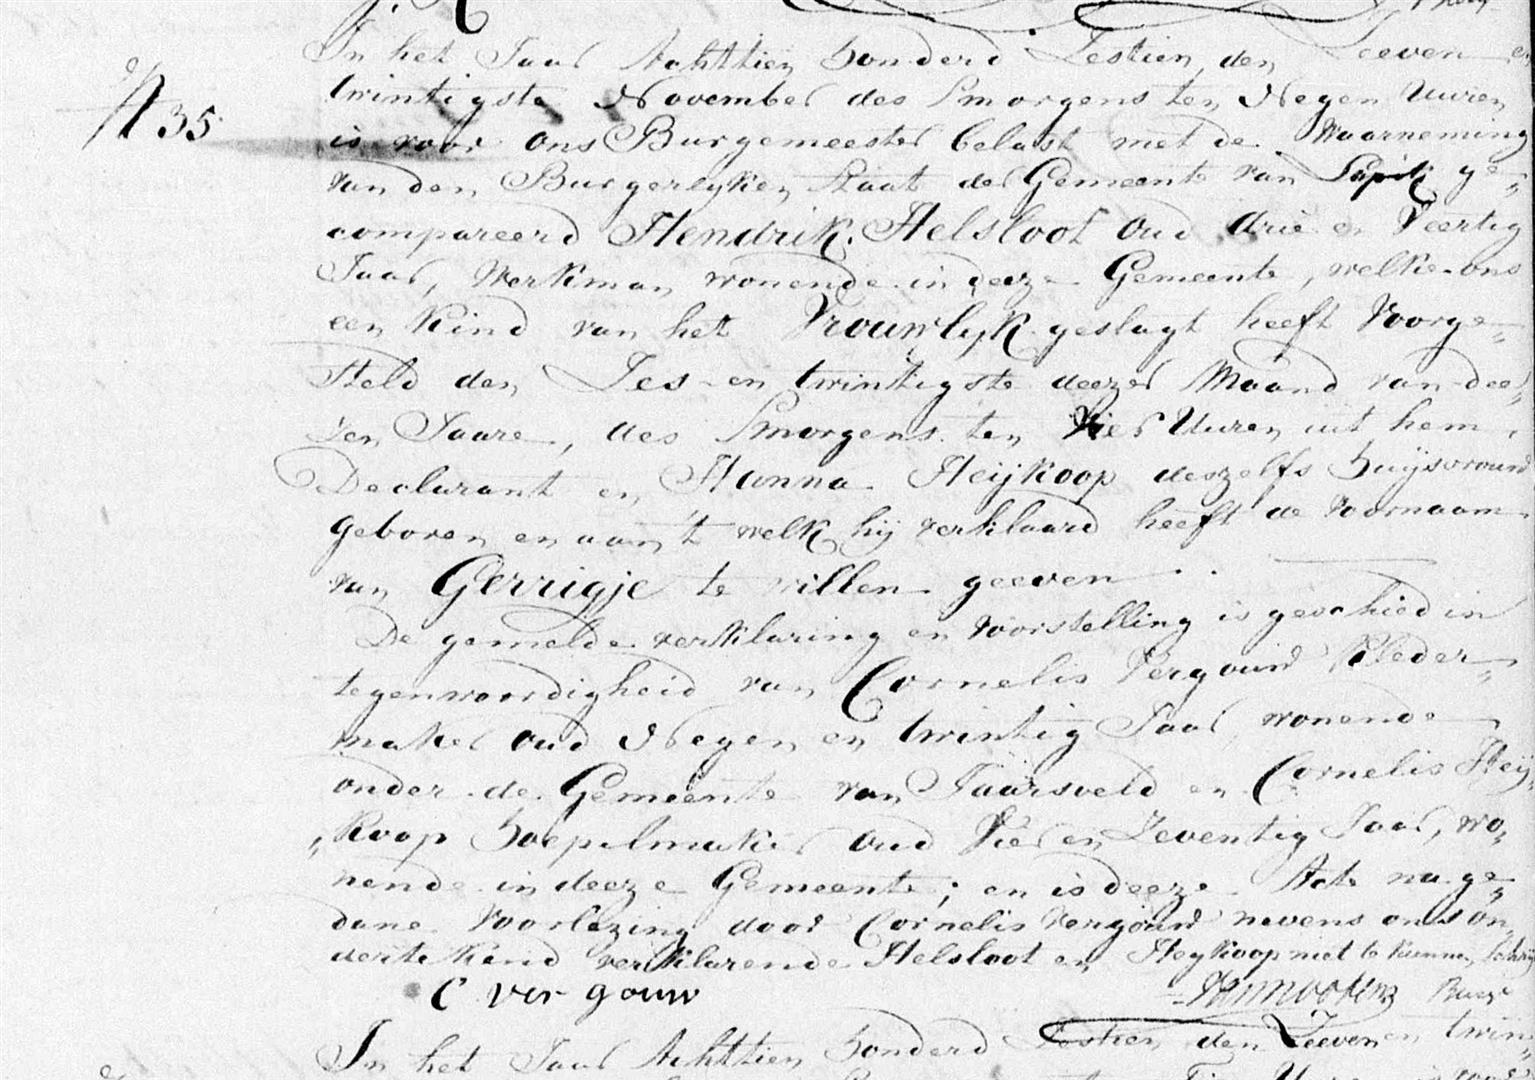 N 35
In het Jaar Achttien honderd Zestien den Zeeven en
twintigste November des Smorgens ten Negen Uuren
is voor ons Burgemeester belast met de Waarneming
van den Burgerlyken Staat der Gemeente van Papik ge„
compareerd Hendrik Helsloot Oud drie en Veertig
Jaar, Werkman wonende in deeze Gemeente, welke ons
een Kind van het Vrouwlyk geslagt heeft Voorge„
steld den Zes en twintigste deezer Maand van dee„
zen Jaare, des Smorgens ten Vier Uuren uit hem
Declarant en Hanna Heijkoop deszelfs huijsvrouw
geboren en aan 't welk hij verklaard heeft de voornaam
van Gerrigje te willen geeven
De gemelde verklaring en Voorstelling is geschied in
tegenwoordigheid van Cornelis Vergouw Kleder„
maker Oud Negen en twintig Jaar, wonende
onder de Gemeente van Jaarsveld en Cornelis Heij„
„Koop hoepelmaker Oud Vier en Zeventig Jaar, wo„
nende in deeze Gemeente; en is deeze Acte na ge„
dane Voorlezing door Cornelis Vergouw nevens ons on„
dertekend verklarende Helsloot en Heykoop niet te kunnen schrijv
C Ver gouw Burgr
In het Jaar Achttien honderd Zestien den Zeeven en twin„